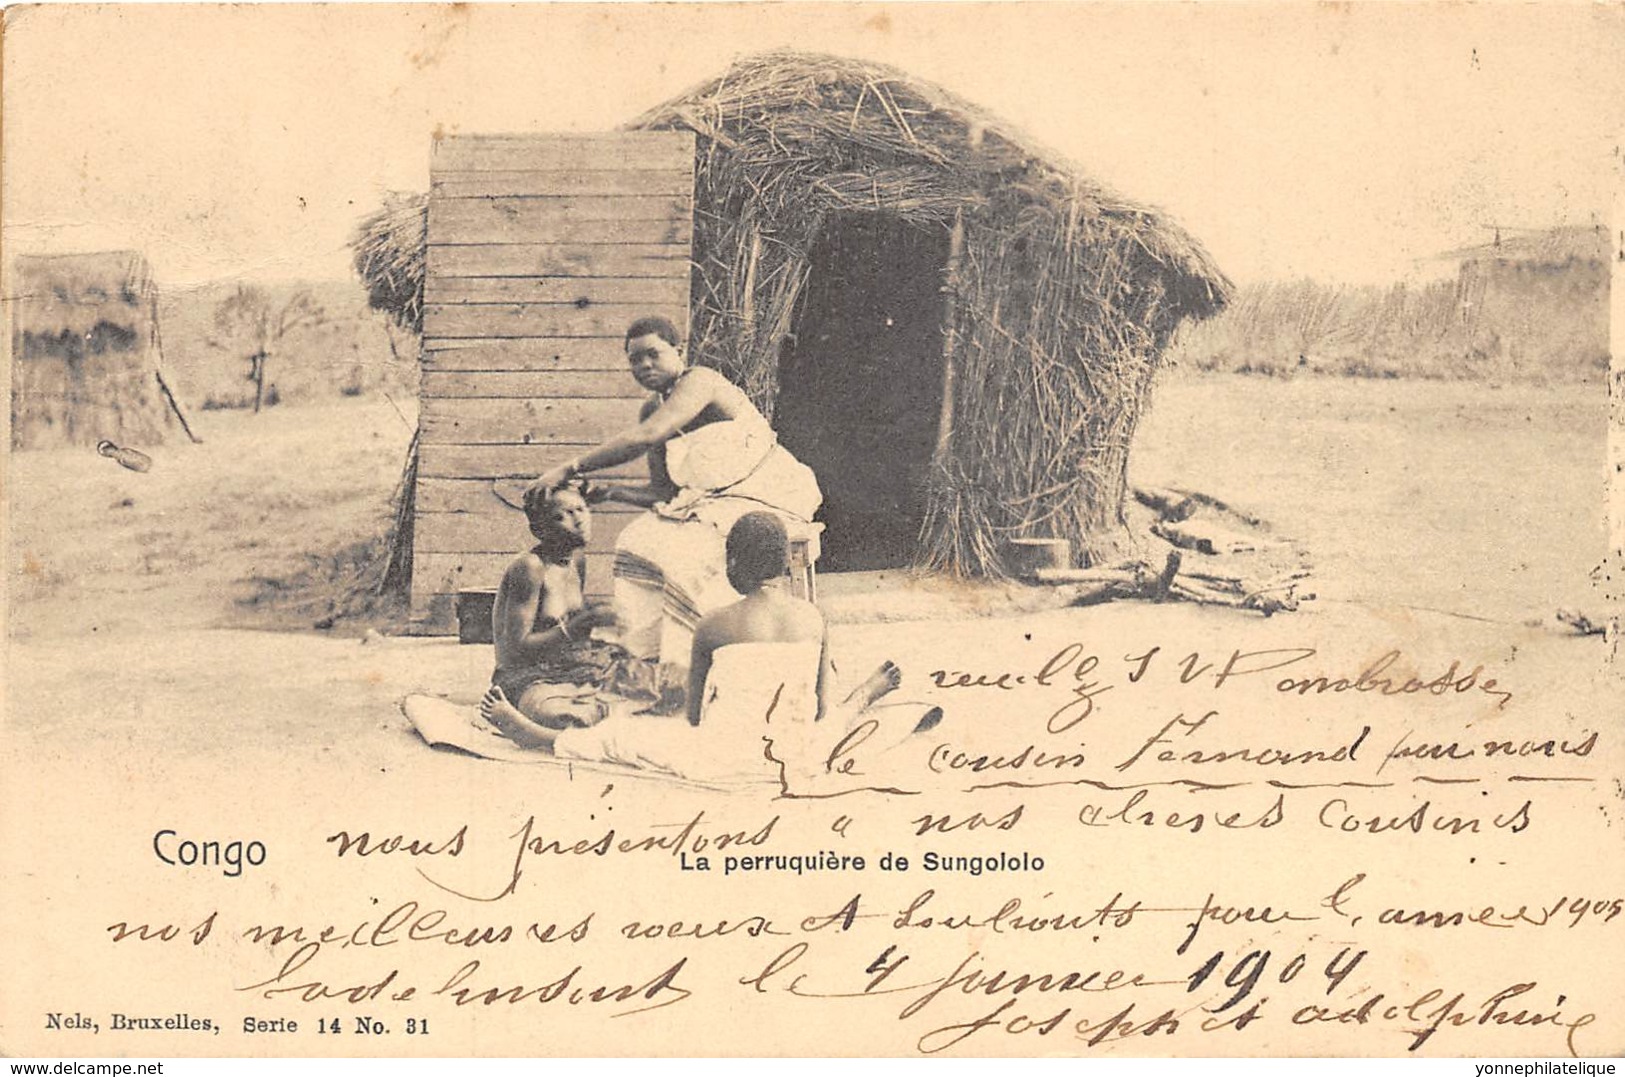 veuille S V P ambrasse
le cousin Fernand pour nous
nous présentons a nos chères cousines
Congo
La perruquière de Sungololo
nos meilleures veux et souhaits pour l'annee 1905
le 4 janvier 1904
Joseph et adolphine
Nels, Bruxelles, Serie 14 No. 31
delcampe.net
yonnephilatelique